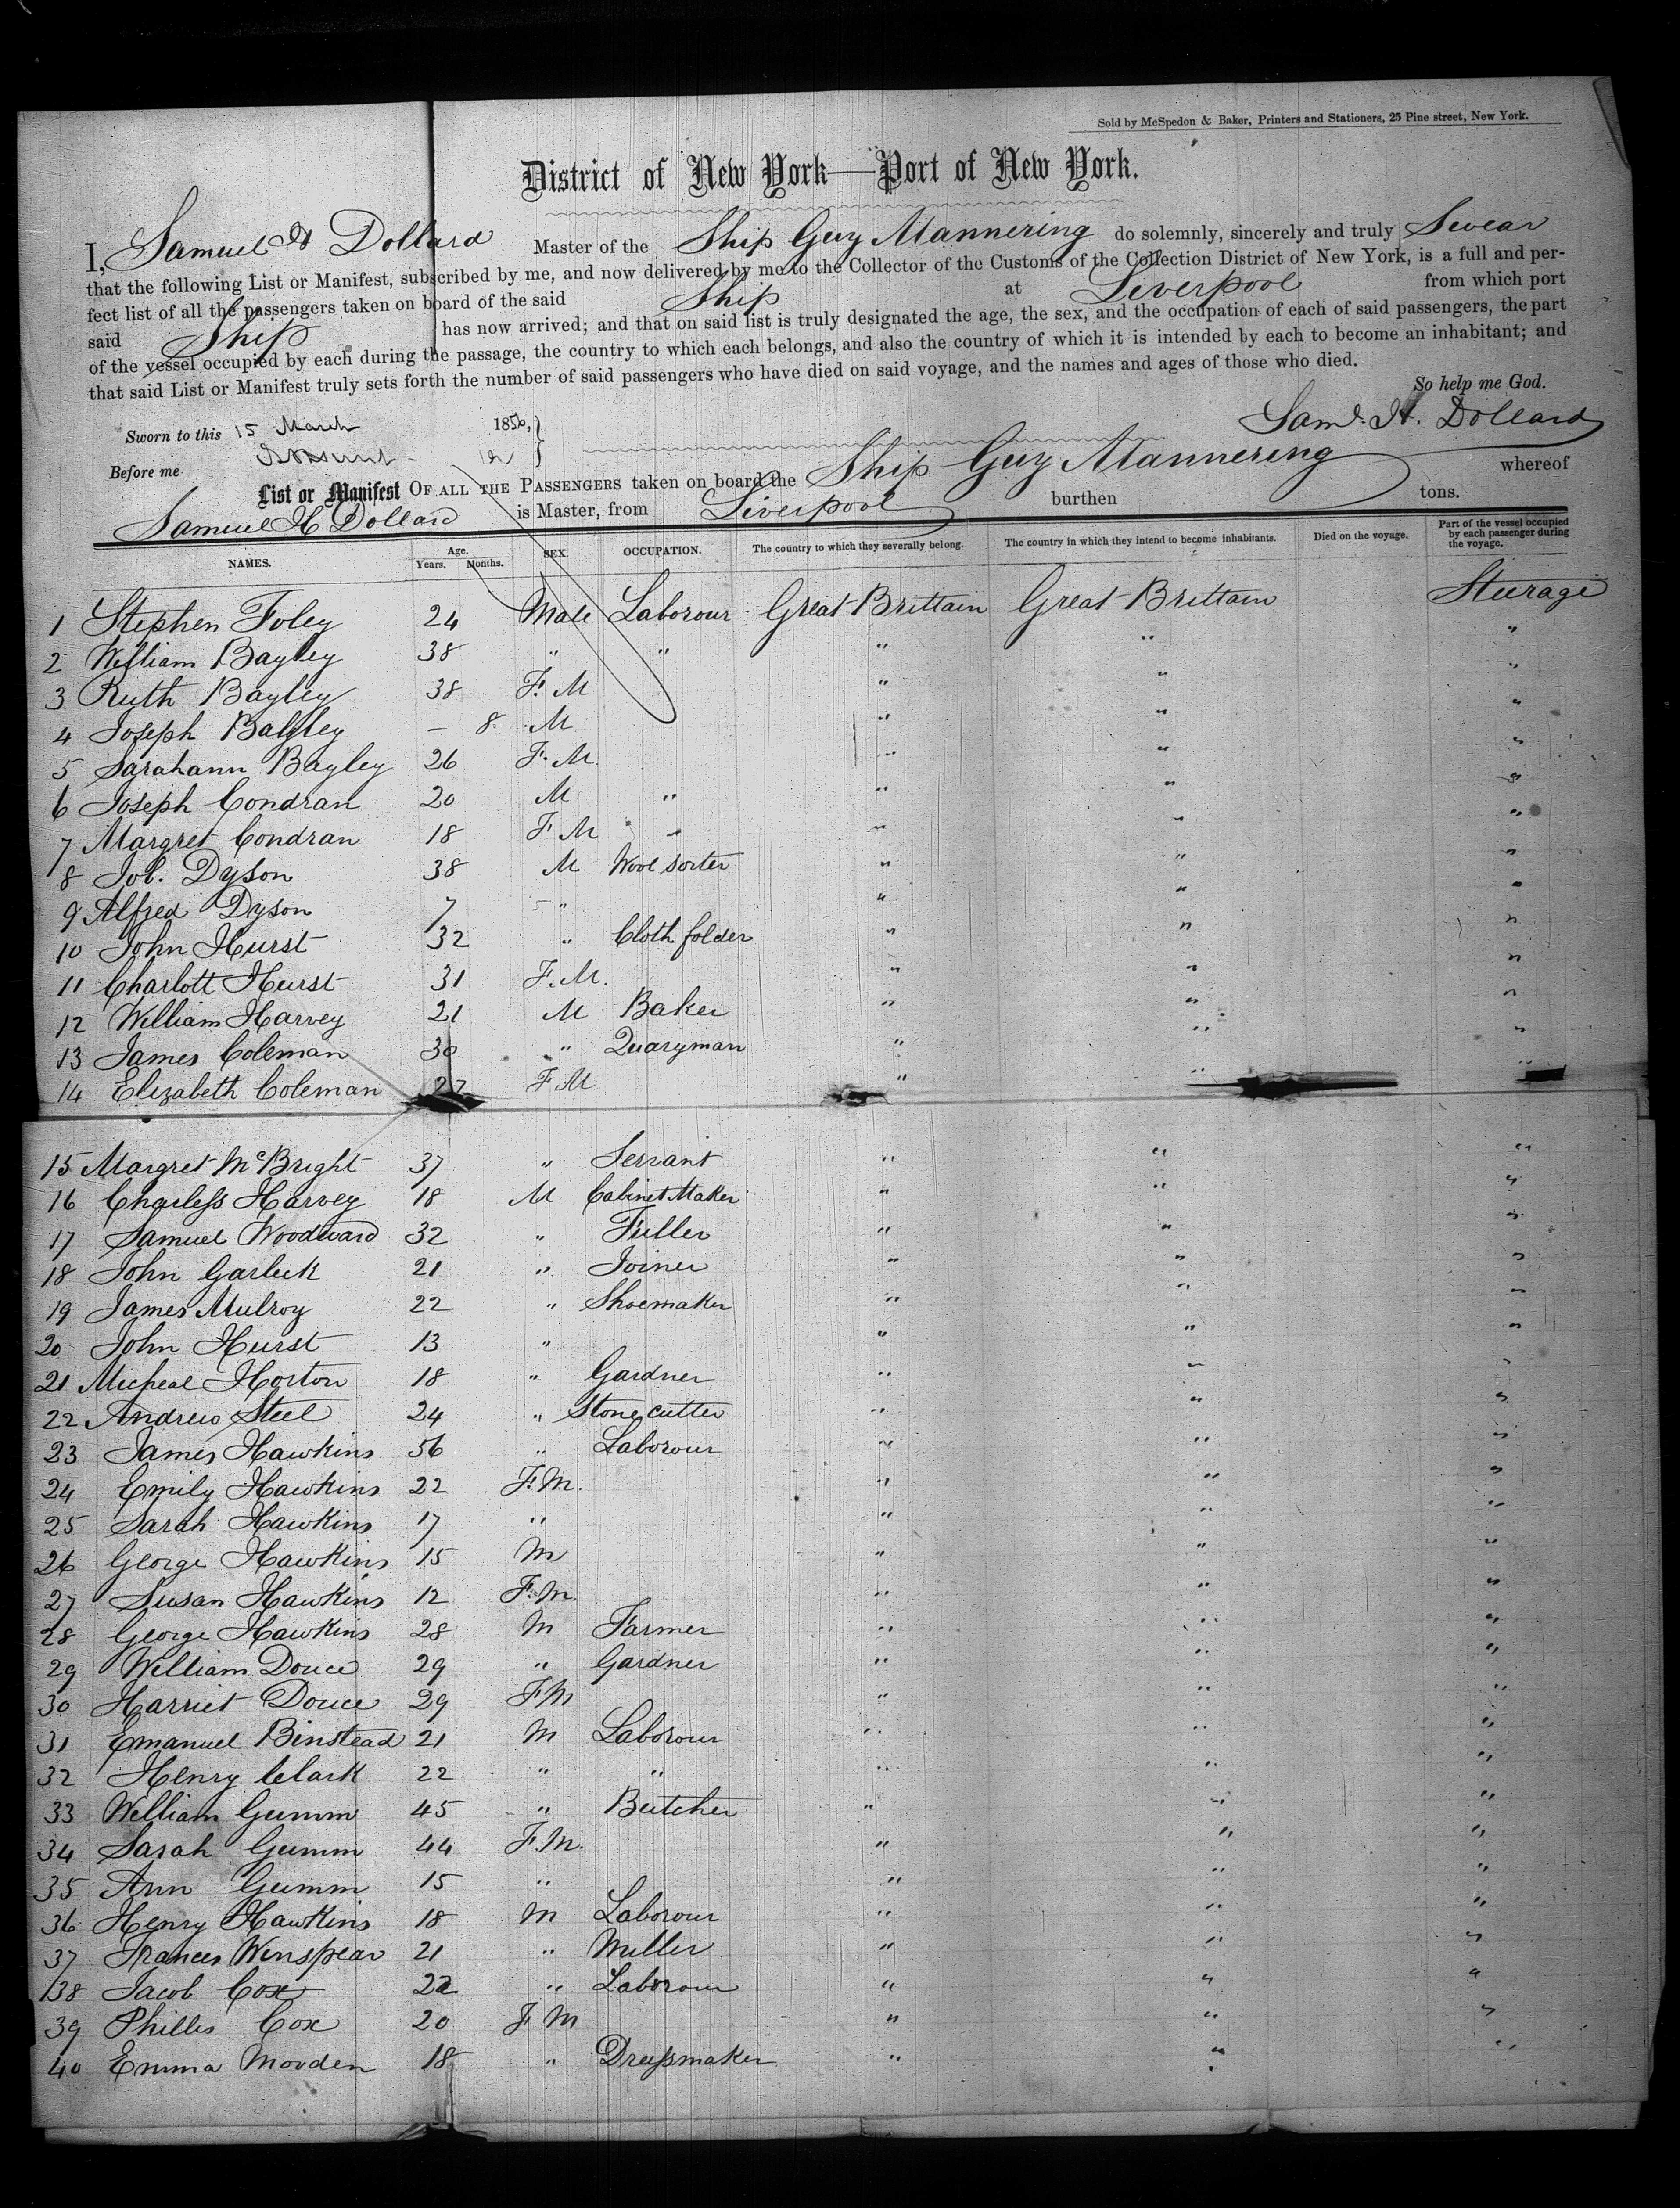 Sold by McSpedon & Baker, Printers and Stationers, 25 Pine street, New York.
District of New York—Port of New York.
I, Samuel H Dollard Master of the Ship Guy Mannering do solemnly, sincerely and truly Swear
that the following List or Manifest, subscribed by me, and now delivered by me to the Collector of the Customs of the Collection District of New York, is a full and per-
fect list of all the passengers taken on board of the said Ship at Liverpool from which port
said Ship has now arrived; and that on said list is truly designated the age, the sex, and the occupation of each of said passengers, the part
of the vessel occupied by each during the passage, the country to which each belongs, and also the country of which it is intended by each to become an inhabitant; and
that said List or Manifest truly sets forth the number of said passengers who have died on said voyage, and the names and ages of those who died.
So help me God.
Sworn to this 15 March 1856, Saml. H. Dollard
Before me
List or Manifest OF ALL THE PASSENGERS taken on board the Ship Guy Mannering whereof
Samuel H Dollard is Master, from Liverpool burthen tons.
NAMES. Age. Years. Months. SEX. OCCUPATION. The country to which they severally belong. The country in which they intend to become inhabitants. Died on the voyage. Part of the vessel occupied by each passenger during the voyage.
1 Stephen Foley 24 Male Laborour Great Brittain Great Brittain Steerage
2 William Bayley 38 " " " " "
3 Ruth Bayley 38 F. M " " "
4 Joseph Bayley – 8 M " " "
5 Sarahann Bayley 26 F. M. " " "
6 Joseph Condran 20 M " " " "
7 Margret Condran 18 F M " " " "
8 Job. Dyson 38 M Wool sorter " " "
9 Alfred Dyson 7 " " " "
10 John Hurst 32 " Cloth folder " " "
11 Charlott Hurst 31 F. M. " " "
12 William Harvey 21 M Baker " " "
13 James Coleman 30 " Quaryman " " "
14 Elizabeth Coleman 27 F M " " "
15 Margret McBright 37 " Servant " " "
16 Charless Harvey 18 M Cabinet Maker " " "
17 Samuel Woodward 32 " Fuller " " "
18 John Garleck 21 " Joiner " " "
19 James Mulroy 22 " Shoemaker " " "
20 John Hurst 13 " " " "
21 Micheal Horton 18 " Gardner " " "
22 Andrew Steel 24 " Stone cutter " " "
23 James Hawkins 56 " Laborour " " "
24 Emily Hawkins 22 F. M. " " "
25 Sarah Hawkins 17 " " " "
26 George Hawkins 15 M " " "
27 Susan Hawkins 12 F. M. " " "
28 George Hawkins 28 M Farmer " " "
29 William Douce 29 " Gardner " " "
30 Harriet Douce 29 F M " " "
31 Emanuel Binstead 21 M Laborour " " "
32 Henry Clark 22 " " " " "
33 William Gumm 45 " Butcher " " "
34 Sarah Gumm 44 F. M. " " "
35 Ann Gumm 15 " " " "
36 Henry Hawkins 18 M Laborour " " "
37 Frances Winspear 21 " Miller " " "
38 Jacob Cox 22 " Laborour " " "
39 Phillis Cox 20 F M " " "
40 Emma Movden 18 " Dressmaker " " "